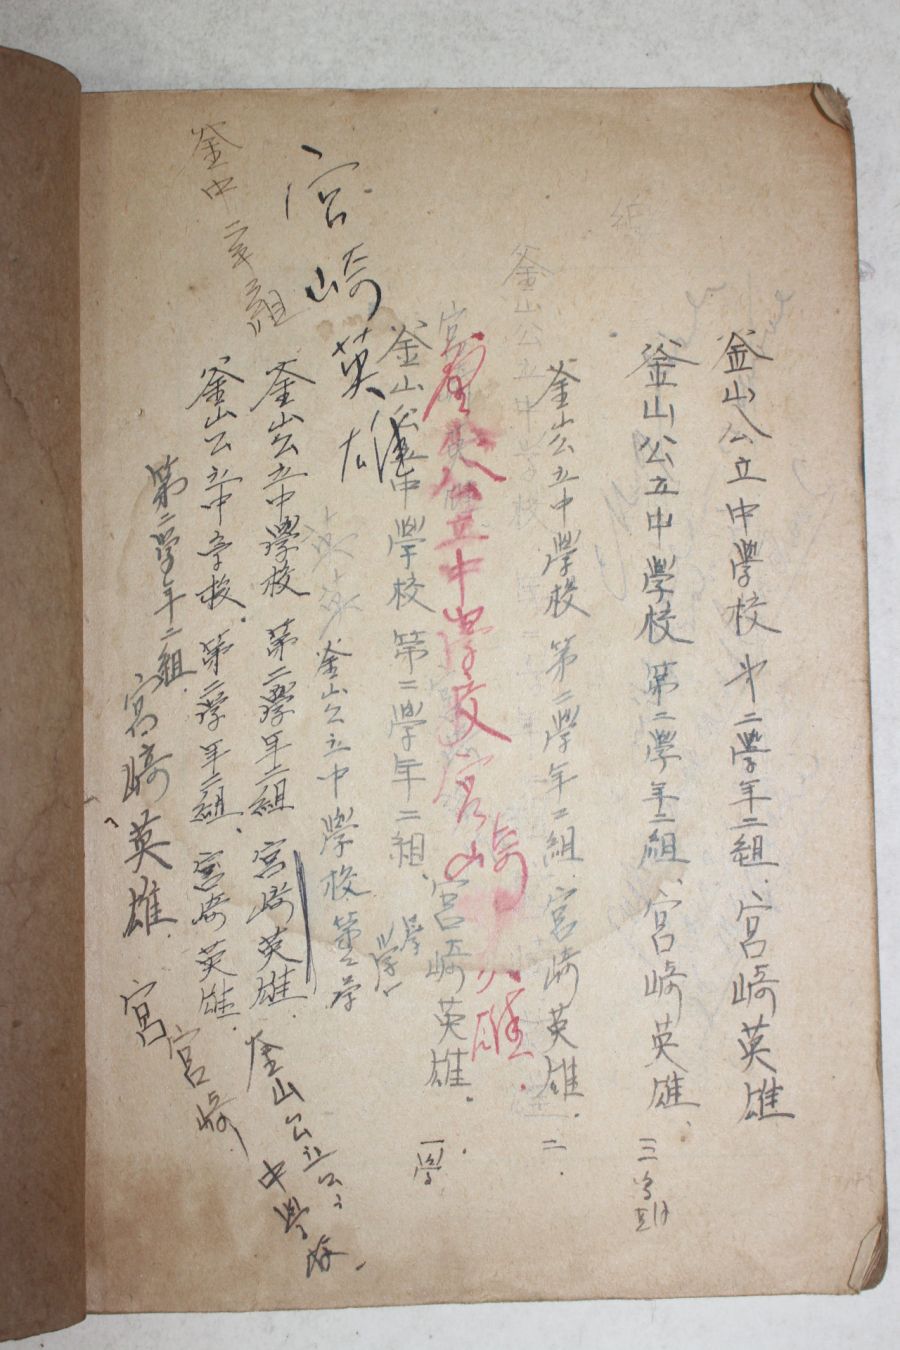 釜山公立中學校 第二學年二組、宮崎英雄
釜山公立中學校 第二學年二組、宮崎英雄、三
釜山公立中學校 第二學年二組 宮崎英雄、二.
釜山公立中学校
釜山公立中學校 宮崎英雄.
釜山公立中學校 第二學年二組、宮崎英雄. 一學
學
學
宮崎英雄
釜山公立中學校 第二学
釜山公立中學校 第二學年二組 宮崎英雄. 釜山公立
中學校.
釜中二年二組
釜山公立中学校. 第二學年二組、宮崎英雄.
宮崎
第二學年二組. 宮崎英雄. 宮